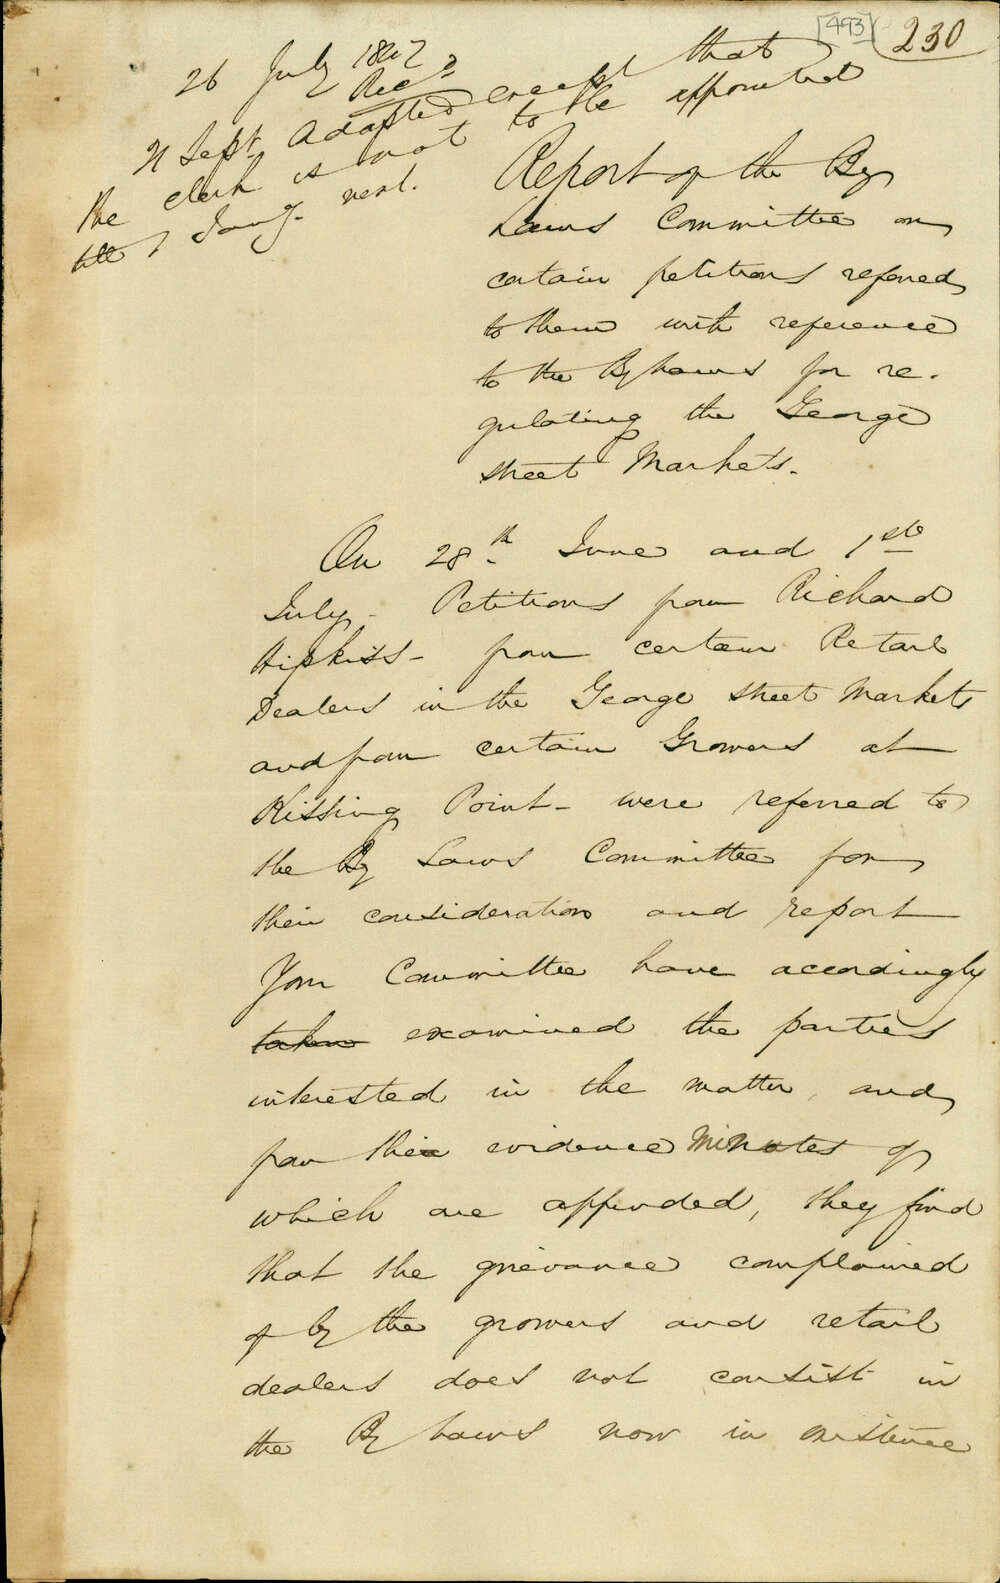 [493] 230
26 July 1847
Recd
21 Sept. Adopted except that
the clerk is not to be appointed
till 1 Jany. next.
Report of the By
Laws Committee on
certain petitions referred
to them with reference
to the By Laws for re-
gulating the George
street Markets.
On 28th June and 1st
July - Petitions from Richard
Hipkiss - from certain Retail
Dealers in the George street Markets
and from certain Growers at
Kissing Point - were referred to
the By Laws Committee for
their consideration and report
Your Committee have accordingly
taken examined the parties
interested in the matter, and
from their evidence Minutes of
which are appended, they find
that the grievance complained
of by the growers and retail
dealers does not consist in
the By Laws now in existence